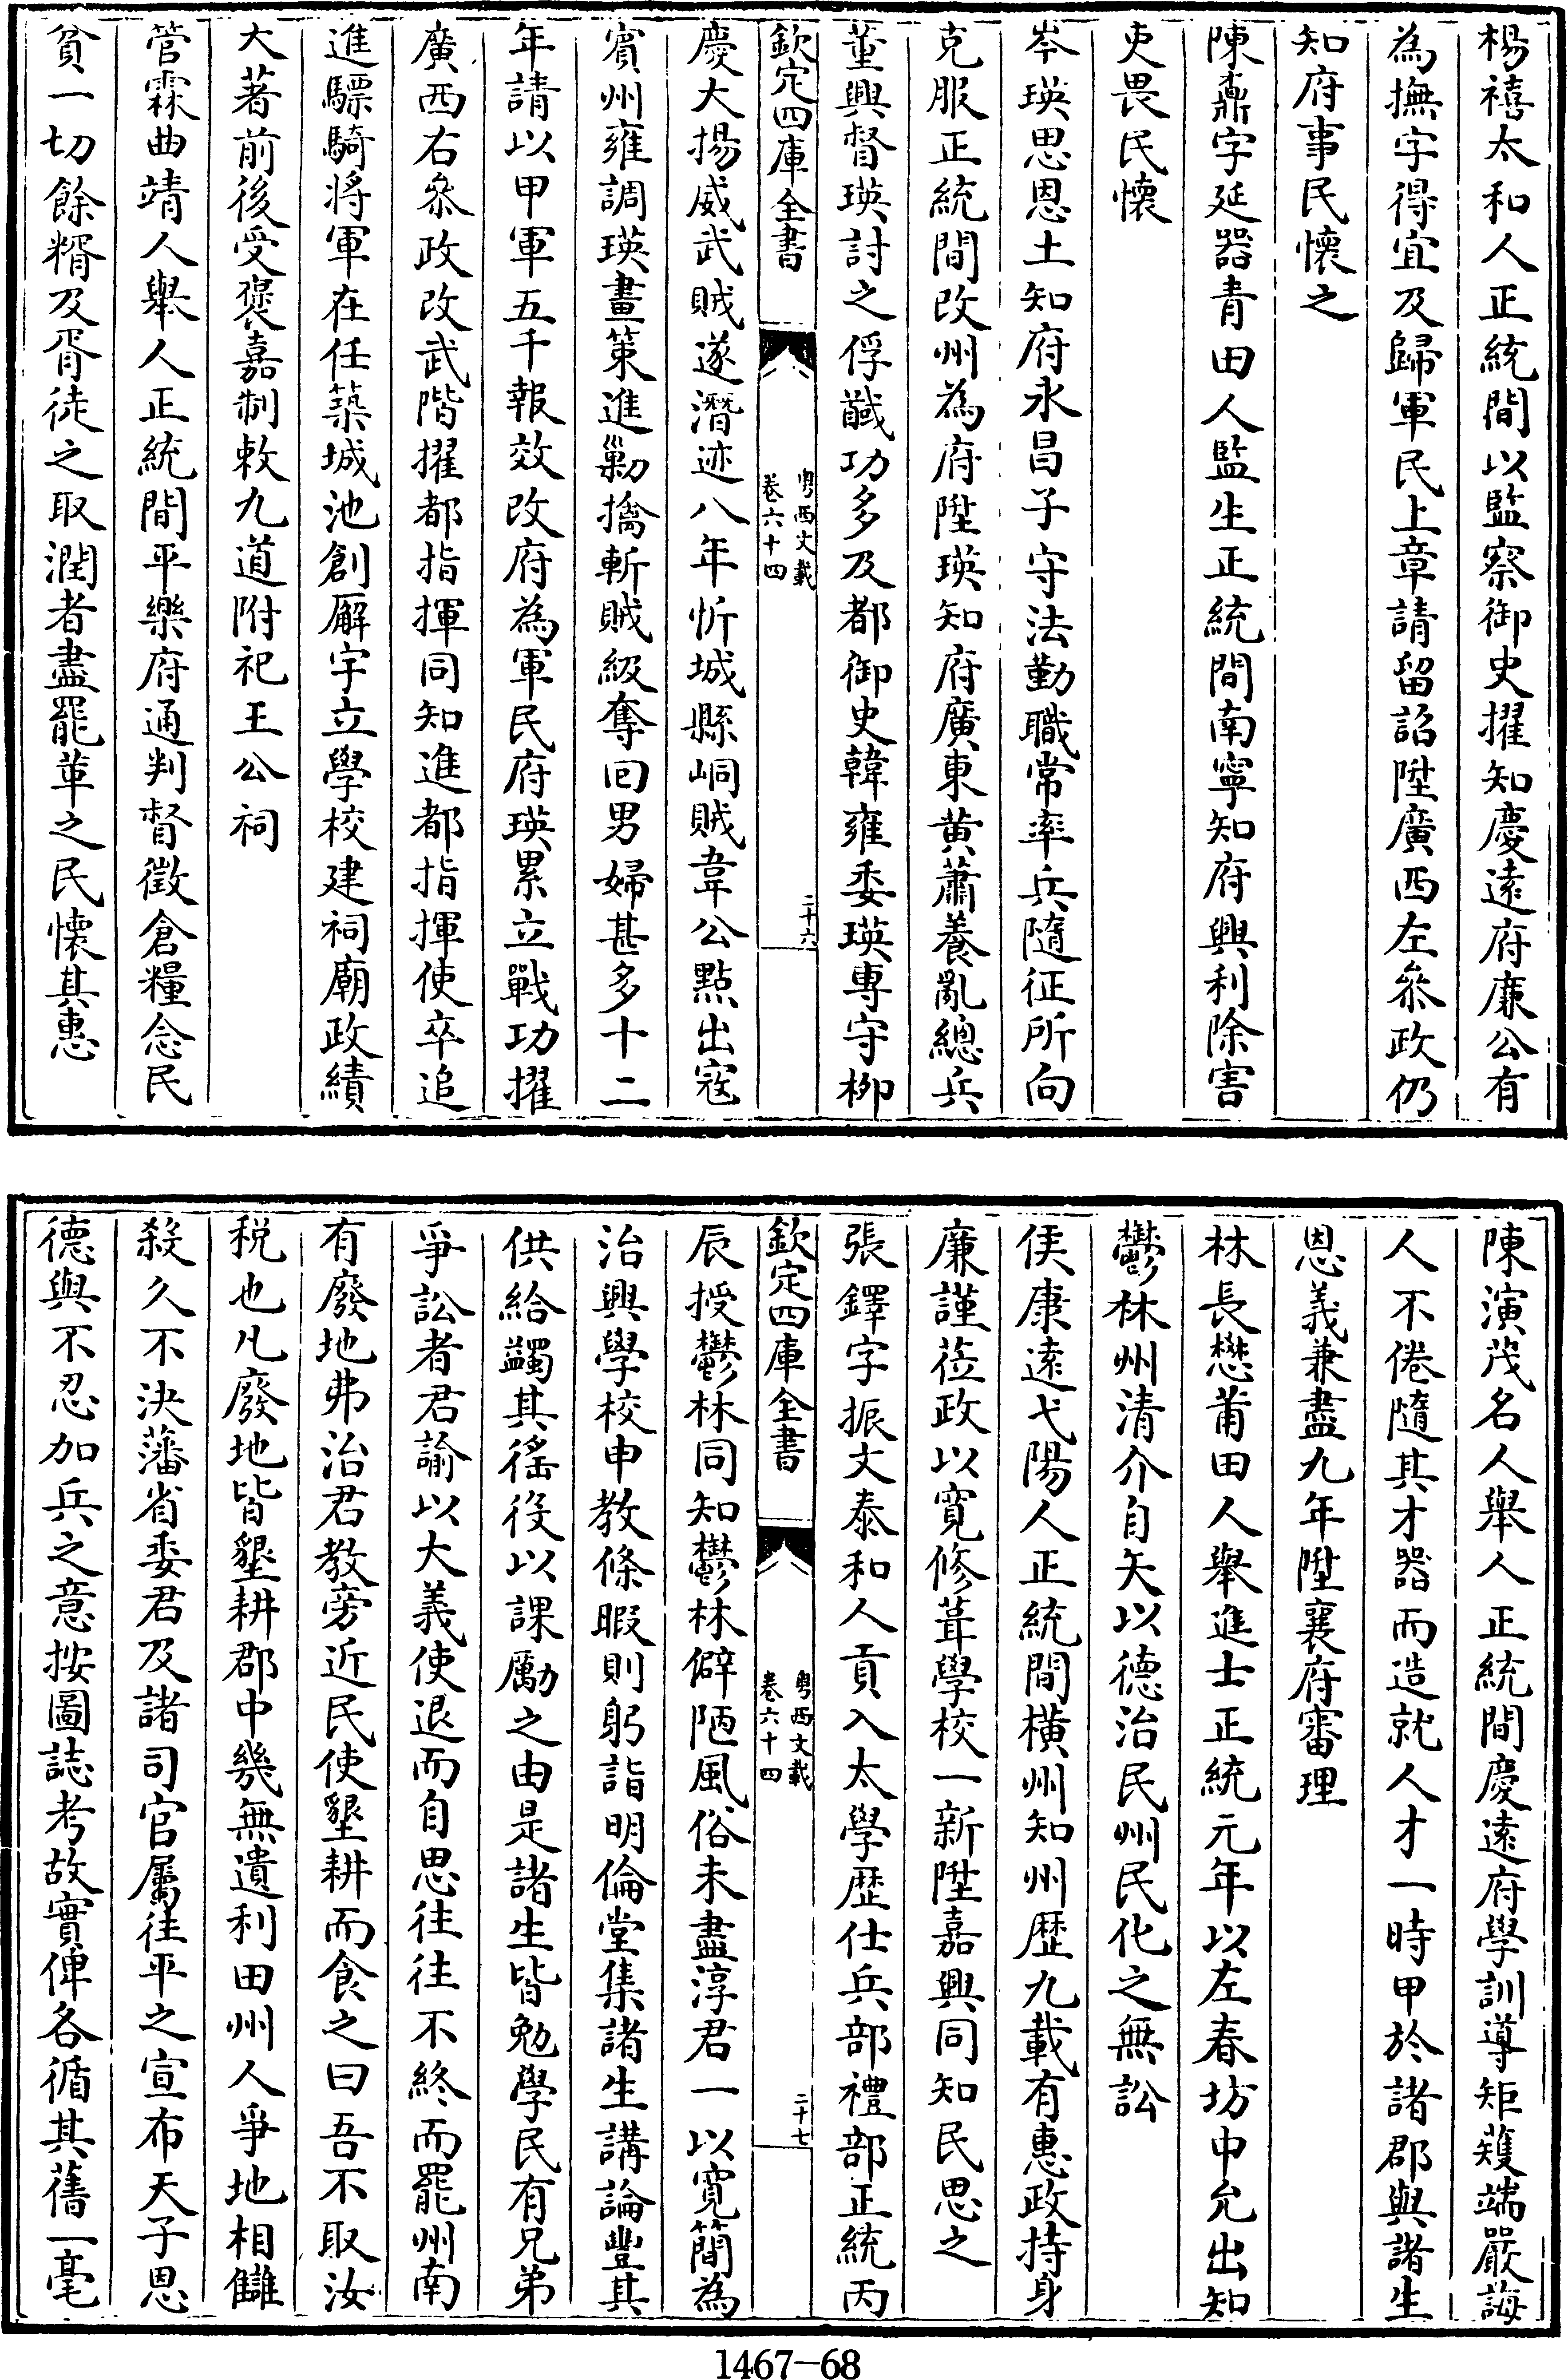 楊禧太和人正統間以監察御史擢知慶遠府廉公有
為撫字得宜及歸軍民上章請留詔陞廣西左叅政仍
知府事民懷之
陳鼒字延器青田人監生正統間南寧知府興利除害
吏畏民懷
岑瑛思恩土知府永昌子守法勤職常率兵隨征所向
克服正統間改州為府陞瑛知府廣東黄蕭養亂總兵
董興督瑛討之俘馘功多及都御史韓雍委瑛專守栁
欽定四庫全書
粤西文載
卷六十四
二十六
慶大揚威武賊遂潛迹八年忻城縣峒賊韋公點出寇
賓州雍調瑛畫策進勦擒斬賊級奪回男婦甚多十二
年請以甲軍五千報效改府為軍民府瑛累立戰功擢
廣西右叅政改武階擢都指揮同知進都指揮使卒追
進驃騎將軍在任築城池創廨宇立學校建祠廟政績
大著前後受褒嘉制敕九道附祀王公祠
管霖曲靖人舉人正統間平樂府通判督徵倉糧念民
貧一切餘糈及胥徒之取潤者盡罷革之民懷其惠
陳演茂名人舉人正統間慶遠府學訓導矩矱端嚴誨
人不倦隨其才器而造就人才一時甲於諸郡與諸生
恩義兼盡九年陞襄府審理
林長懋莆田人舉進士正統元年以左春坊中允出知
鬱林州清介自矢以德治民州民化之無訟
侯康遠弋陽人正統間横州知州歴九載有惠政持身
廉謹莅政以寛修葺學校一新陞嘉興同知民思之
張鐸字振文泰和人貢入太學歴仕兵部禮部正統丙
欽定四庫全書
粤西文載
卷六十四
二十七
辰授鬱林同知鬱林僻陋風俗未盡淳君一以寛簡為
治興學校申教條暇則躬詣明倫堂集諸生講論豐其
供給蠲其徭役以課勵之由是諸生皆勉學民有兄弟
爭訟者君諭以大義使退而自思往往不終而罷州南
有廢地弗治君教旁近民使墾耕而食之曰吾不取汝
税也凡廢地皆墾耕郡中幾無遺利田州人爭地相讎
殺久不決藩省委君及諸司官屬往平之宣布天子恩
德與不忍加兵之意按圖誌考故實俾各循其舊一毫
1467-68